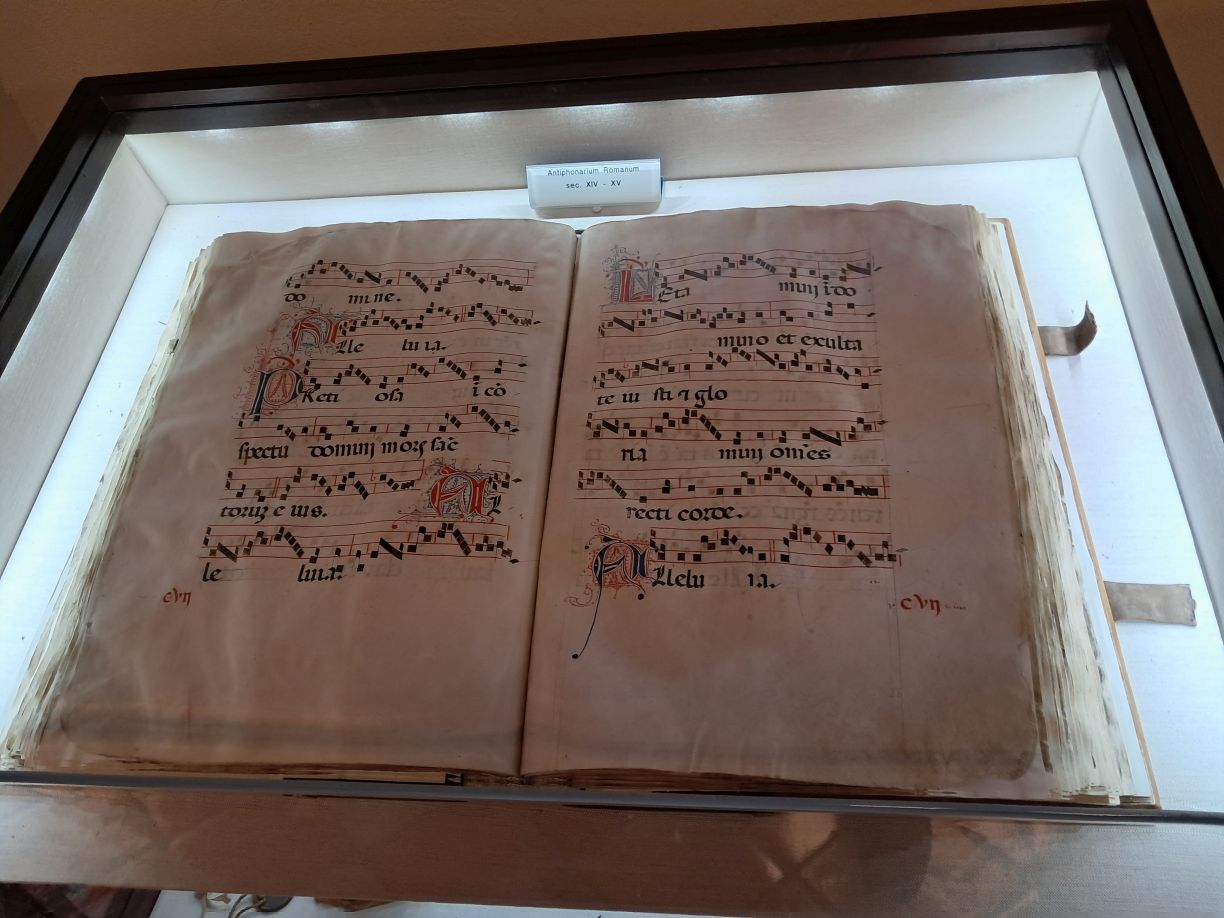 Antiphonarium Romanum
sec. XIV - XV
do mi ne.
Alle lu ia.
Preti osa i cō
spectu domini mors sāc
toruȝ e ius. Al
le luia.
cvij
Leta mini i do
mino et exulta
te iu sti ⁊ glo
ria mini om̄es
recti corde.
Allelu ia.
cvij